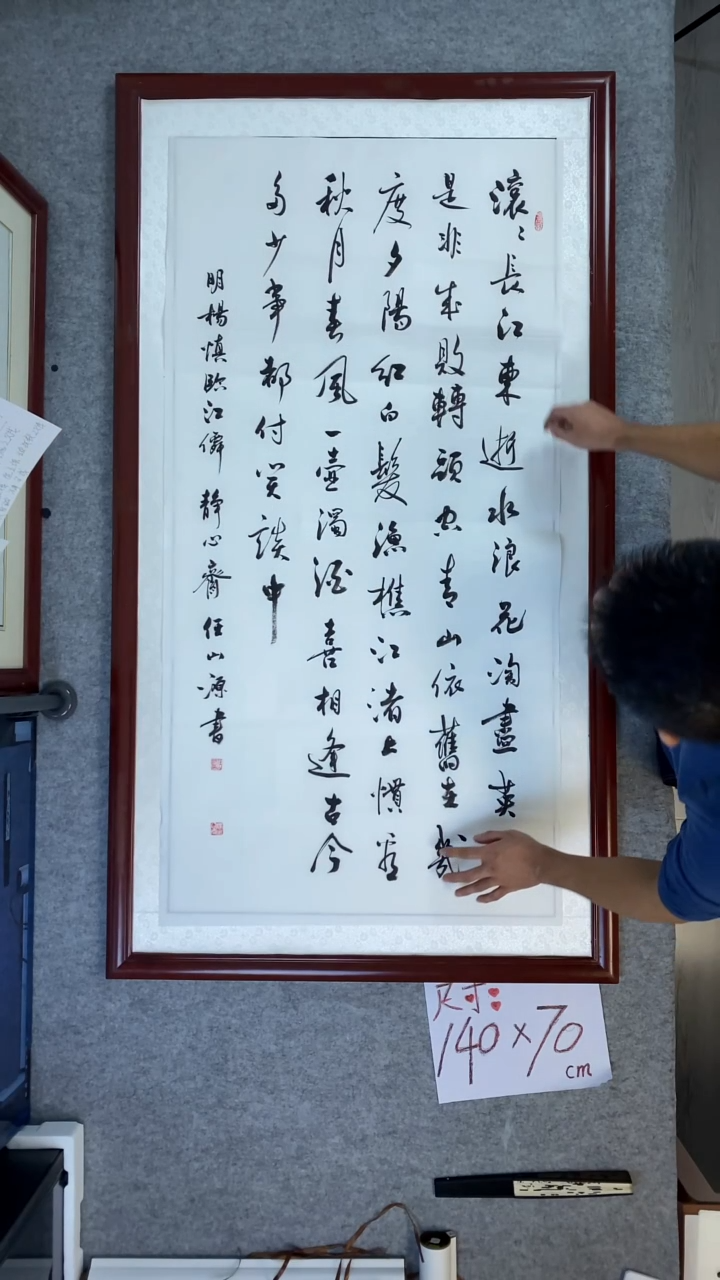 滾〻長江東逝水浪花淘盡英
是非成敗轉頭空青山依舊在幾
度夕陽紅白髮漁樵江渚上慣看
秋月春風一壺濁酒喜相逢古今
多少事都付笑談中
明楊慎臨江僊 靜心齋任山源書
尺寸:
140×70
cm